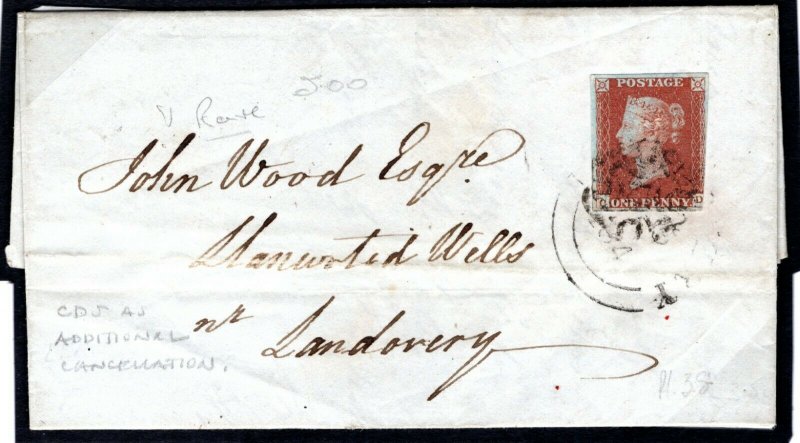 V Rare 500
POSTAGE
ONE PENNY
John Wood Esqre
Llanwrted Wells
nr Landovery
CDS AS
ADDITIONAL
CANCELLATION.
Pl. 38